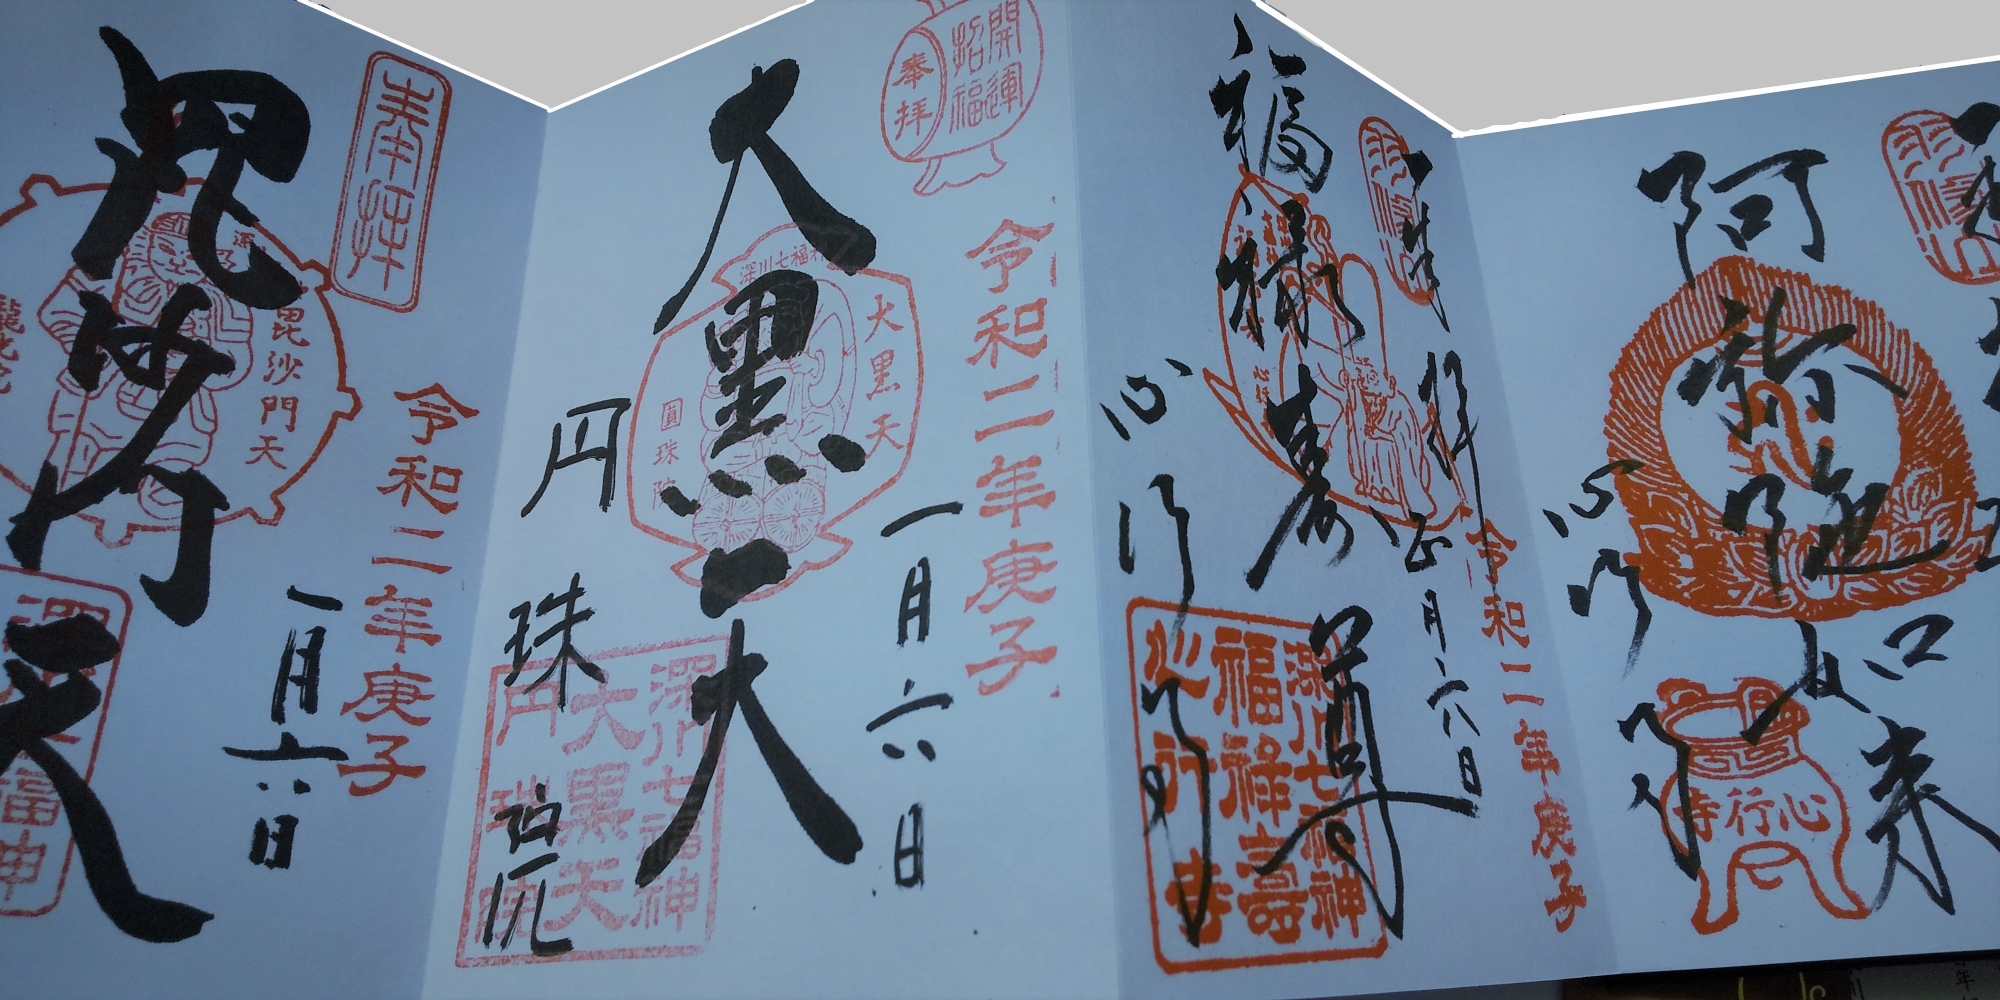 阿弥陀如来
心行寺
心行寺
奉拝
令和二年庚子
正月六日
福禄寿尊
心行寺
深川七福神
福禄壽
心行寺
開運
招福
奉拝
令和二年庚子
一月六日
大黒天
深川七福神
大黒天
圓珠院
円珠院
深川七福神
大黒天
円珠院
奉拝
令和二年庚子
一月六日
毘沙門天
毘沙門天
福神